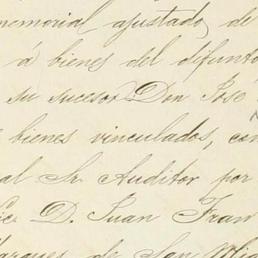 memorial ajustado, de
á bienes del difunto
su sucesor Don José
bienes vinculados, con
al Sr. Auditor por
Lic. D. Juan Fran
Marques de San Mig